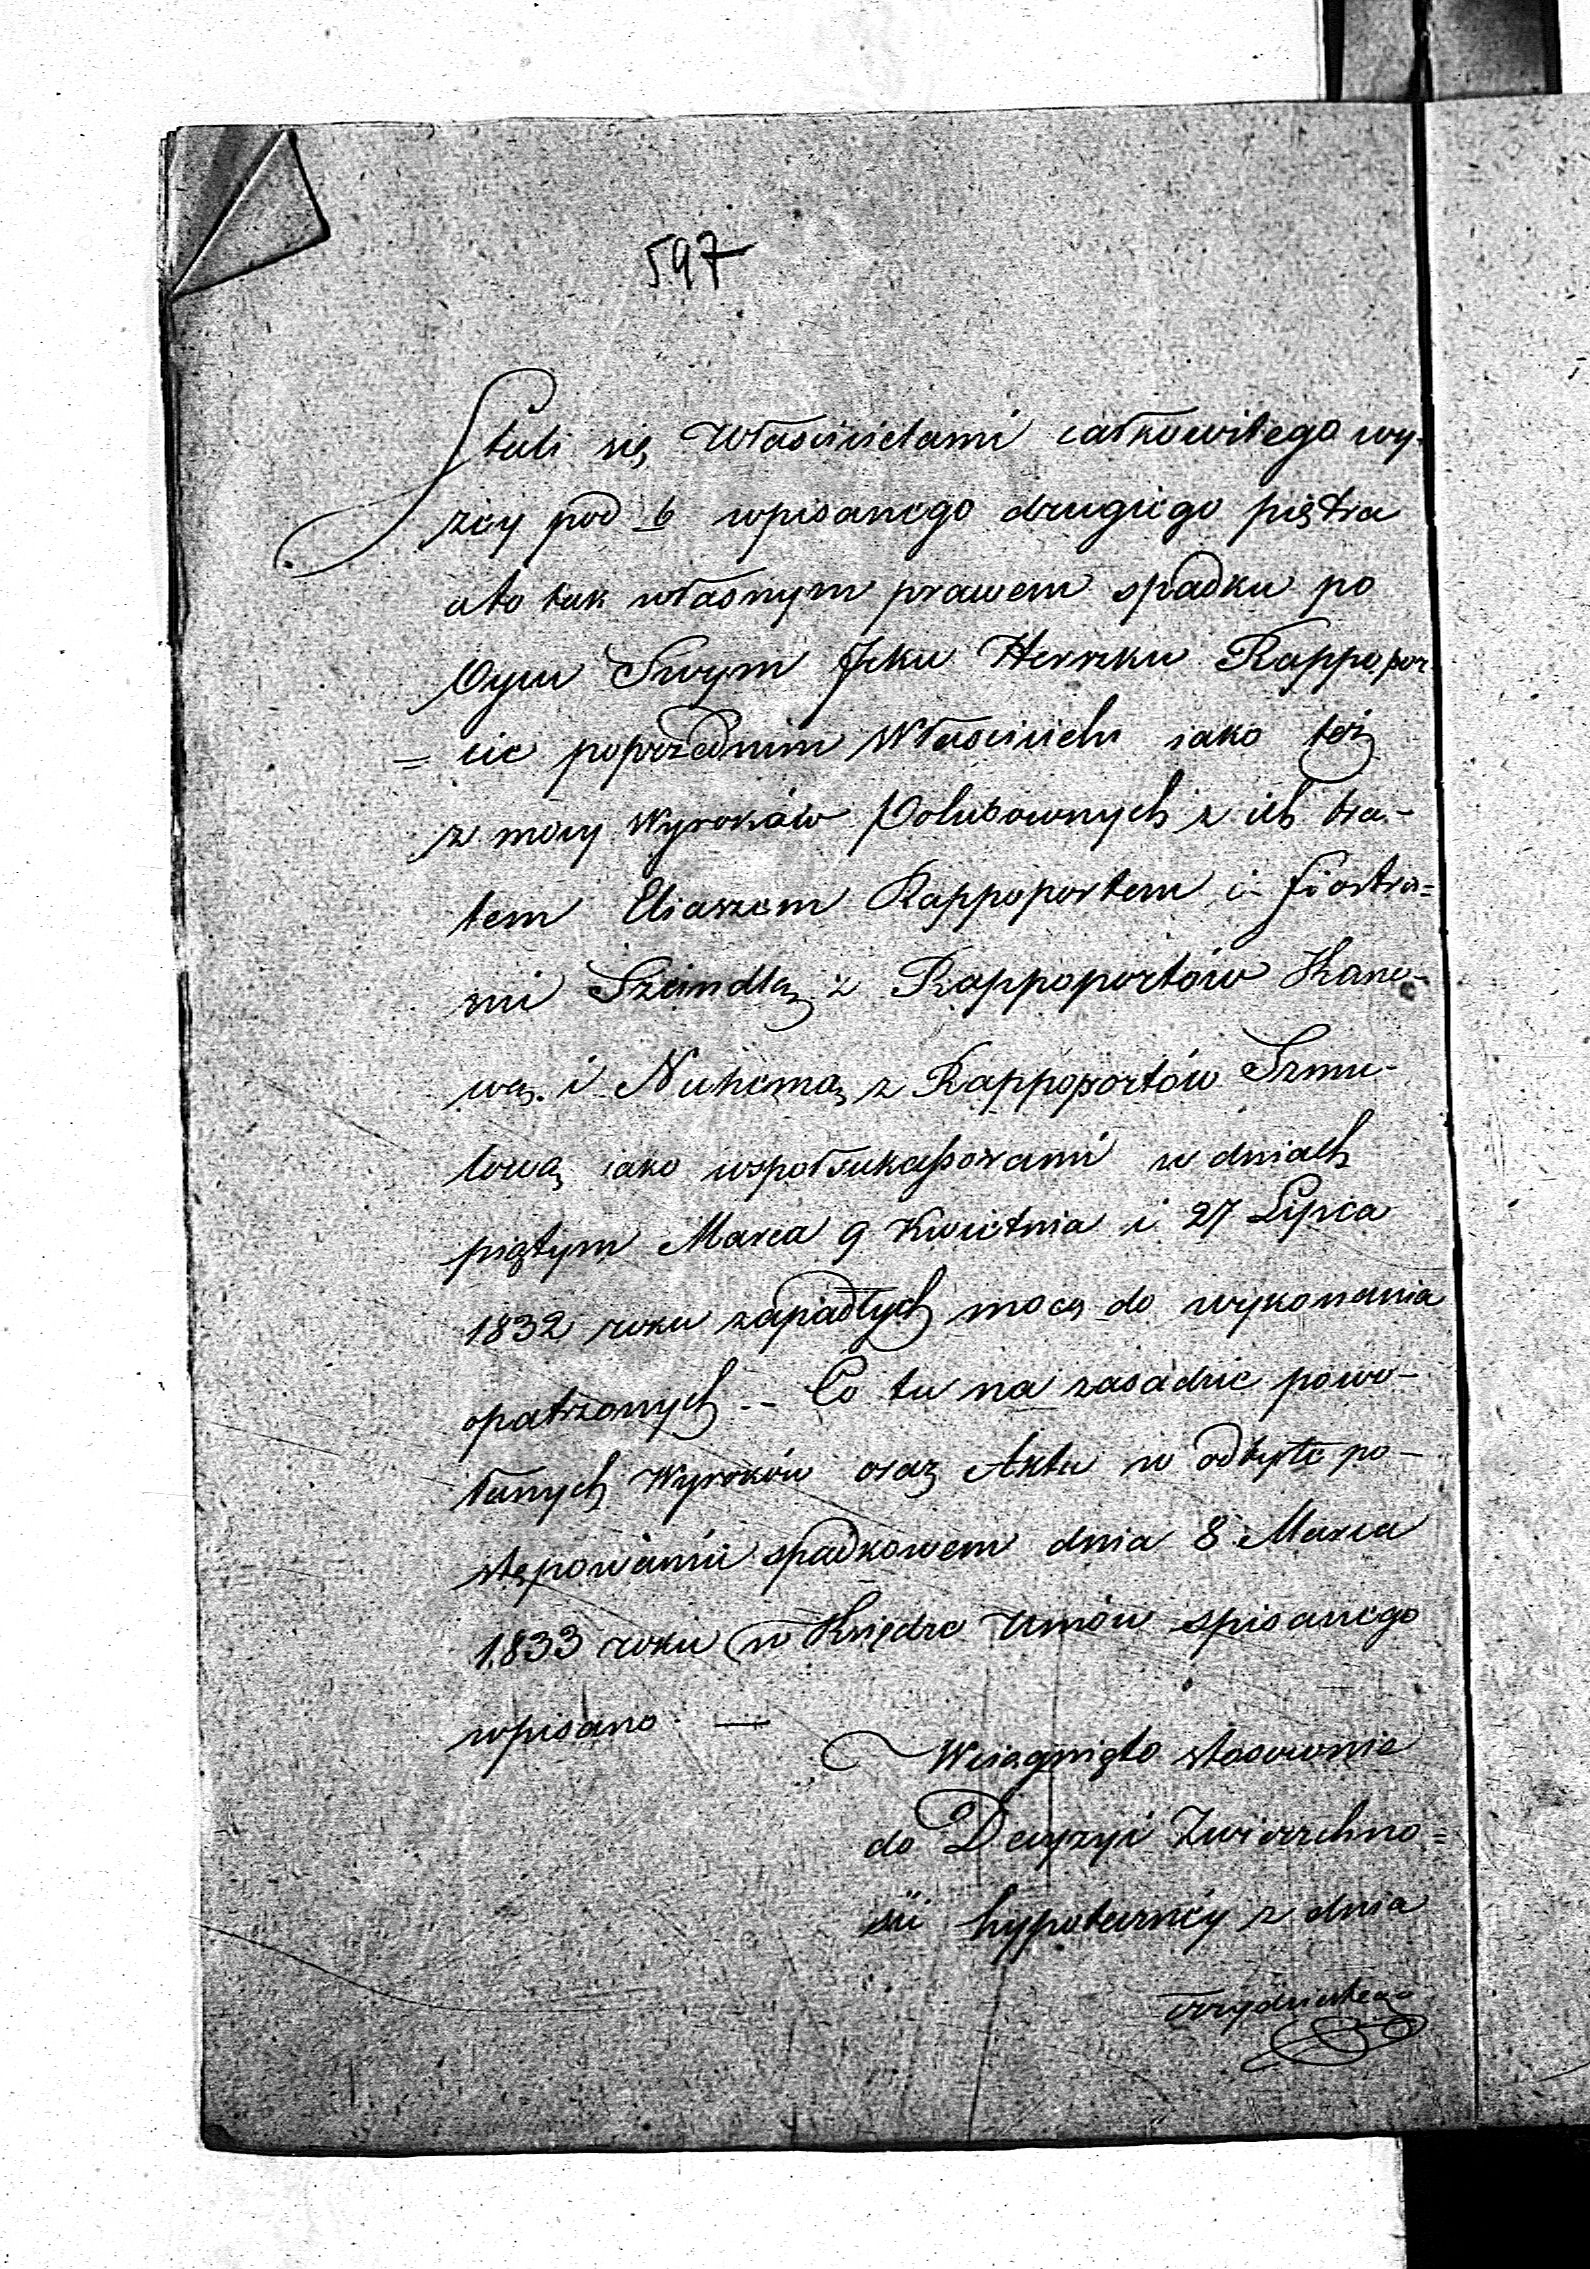 597
Stali się Właścicielami całkowitego wy-
żey pod b wpisanego drugiego piętra
a to tak własnym prawem spadku po
Oycu Swym Jcku Herszku Rappopor
= cie poprzednim Właścicielu iako też
z mocy Wyroków Polubownych z ich bra-
tem Eliaszem Rappoportem i Siostra=
mi Szeindlą z Rappoportów Kano-
wą i Nuhemą z Rappoportów Szmu-
lową iako współsukcessorami w dniach
piątym Marca 9 Kwietnia i 27 Lipca
1832 roku zapadłych mocą do wykonania
opatrzonych -- Co tu na zasadzie powo-
łanych Wyroków oraz Aktu w odbytē po-
stępowaniu spadkowem dnia 8 Marca
1833 roku w Księdze Umów spisanego
wpisano. —
Wciągnięto stosownie
do Decyzyi Zwierzchno=
ści hypoteczney z dnia